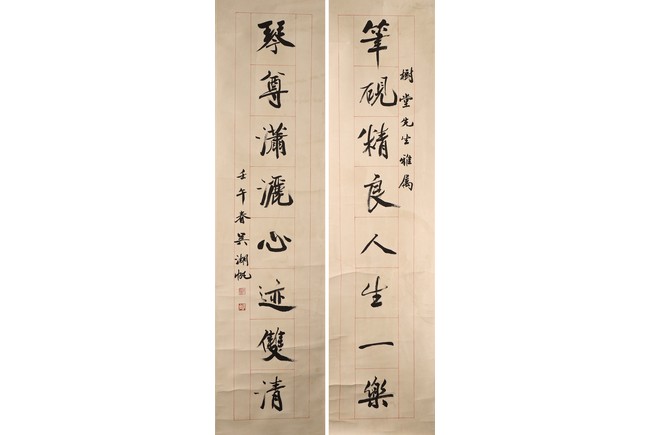 筆硯精良人生一樂
樹堂先生雅属
琴尊瀟灑心迹雙清
壬午春吴湖帆